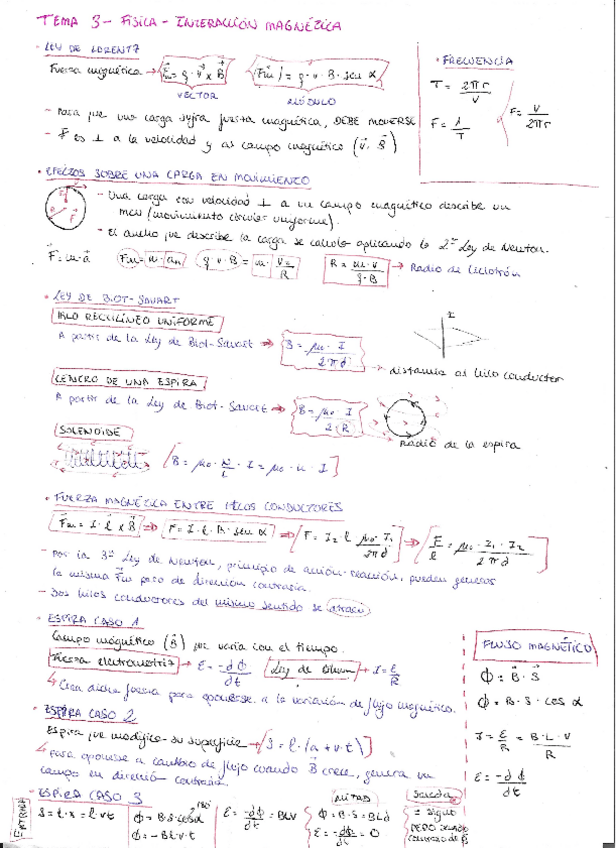 TEMA 3 - FÍSICA - INTERACCIÓN MAGNÉTICA
· LEY DE LORENTZ
Fuerza magnética → F⃗m = q · v⃗ x B⃗   |F⃗m| = q · v · B · sen α
VECTOR   MÓDULO
- Para que una carga sufra fuerza magnética, DEBE MOVERSE
- F⃗ es ⊥ a la velocidad y al campo magnético (v⃗ · B⃗)
· FRECUENCIA
T = 2πr / v
F = 1 / T   F = v / 2πr
· EFECTOS SOBRE UNA CARGA EN MOVIMIENTO
- Una carga con velocidad ⊥ a un campo magnético describe un
mcu (movimiento circular uniforme).
- El ancho que describe la carga se calcula aplicando la 2ª Ley de Newton.
F⃗ = m · a⃗   Fm = m · an   q · v · B = m · v² / R   R = m · v / q · B → Radio de Ciclotrón
· LEY DE BIOT-SAVART
HILO RECTILÍNEO UNIFORME
A partir de la Ley de Biot-Savart → B = μ₀ · I / 2πd
I
→ distancia al hilo conductor
CENTRO DE UNA ESPIRA
A partir de la Ley de Biot-Savart → B = μ₀ · I / 2 R
Radio de la espira
SOLENOIDE
B = μ₀ · N / L · I = μ₀ · n · I
· FUERZA MAGNÉTICA ENTRE HILOS CONDUCTORES
F⃗m = I · l⃗ x B⃗ ⇒ F = I · l · B · sen α ⇒ F = I₂ · l μ₀ · I₁ / 2πd → F / l = μ₀ · I₁ · I₂ / 2πd
- Por la 3ª Ley de Newton, principio de acción-reacción, pueden generar
la misma F⃗m pero de dirección contraria.
- Dos hilos conductores del mismo sentido se atraen
· ESPIRA CASO 1
Campo magnético (B⃗) que varía con el tiempo.
Fuerza electromotriz → ε = -dΦ / dt   Ley de Ohm → I = ε / R
↳ Crea dicha fuerza para oponerse a la variación de flujo magnético.
· ESPIRA CASO 2
Espira que modifica su superficie → S = l · (a + v · t)
↳ Para oponerse a cambio de flujo cuando B⃗ crece, genera un
campo en dirección contraria.
FLUJO MAGNÉTICO
Φ = B⃗ · S⃗
Φ = B · S · cos α
I = ε / R = B · L · V / R
ε = -dΦ / dt
· ESPIRA CASO 3
ENTRADA
S = l · x = l · vt
Φ = B · S · cos α 180
Φ = -Bl · v · t
ε = -dΦ / dt = BLV
MITAD
Φ = B · S = BLd
ε = -dΦ / dt = 0
SALIDA
= signo
PERO sentido
contrario de